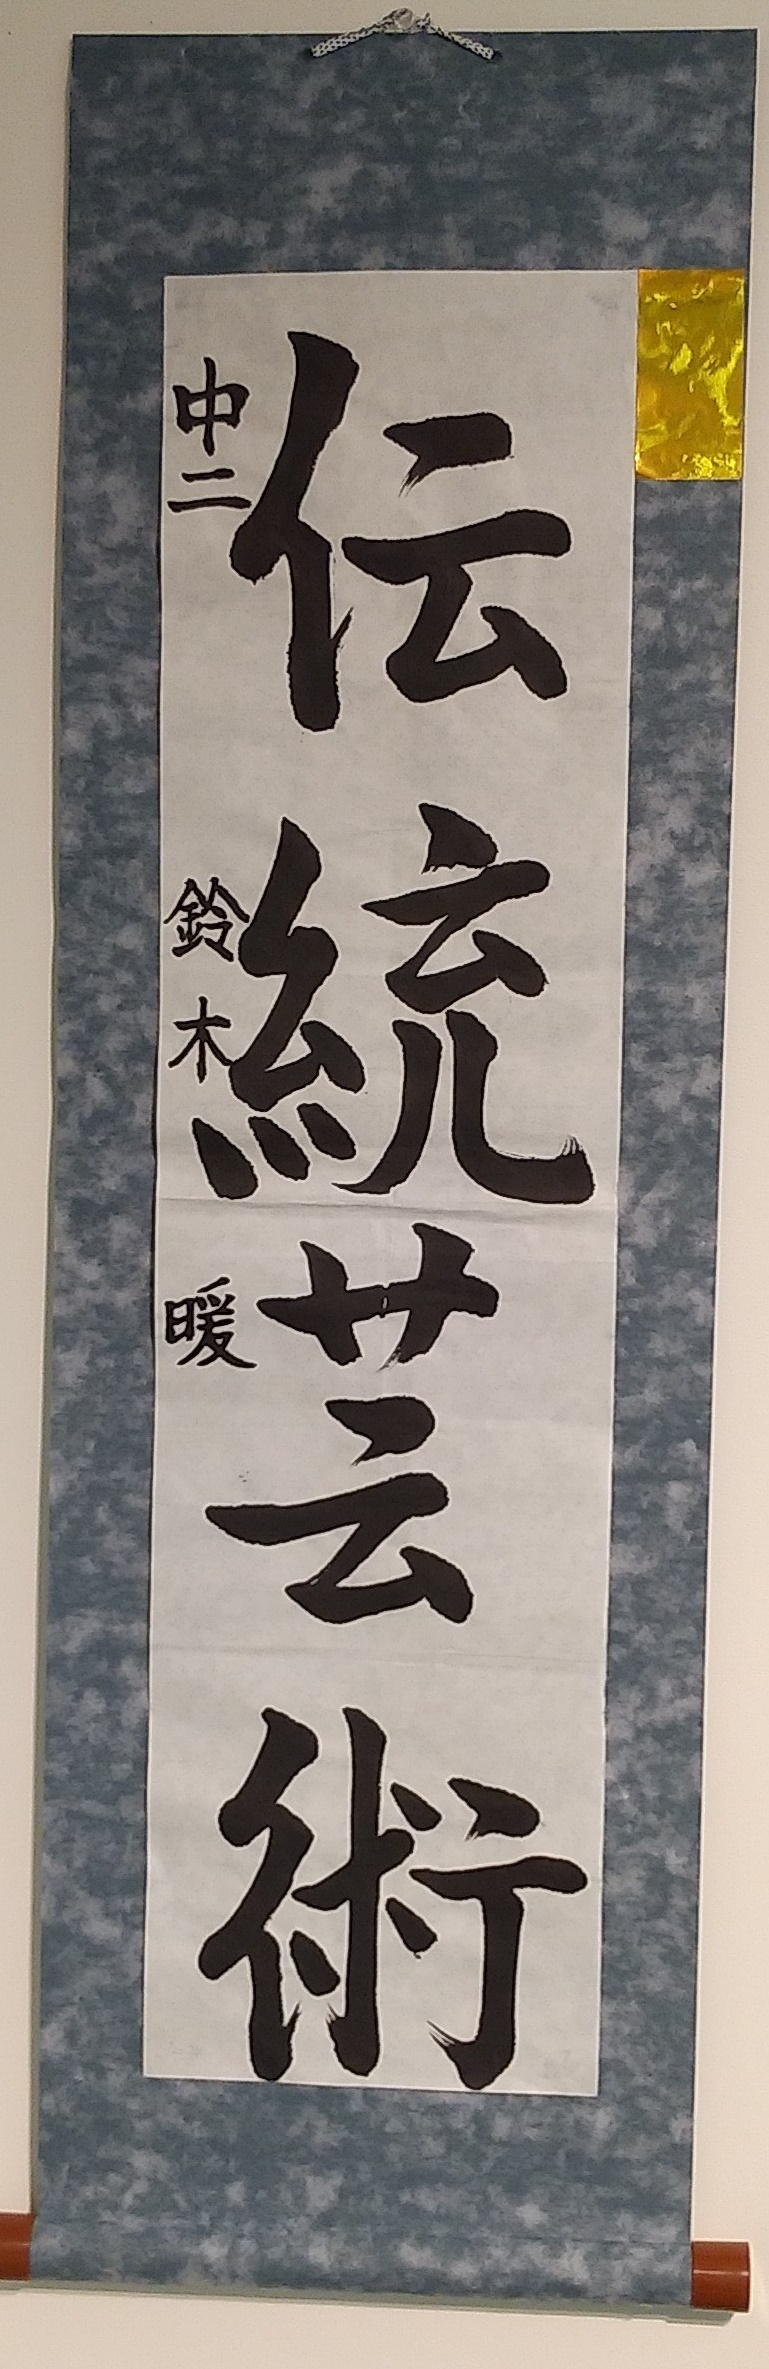 伝統芸術
中二 鈴木 暖